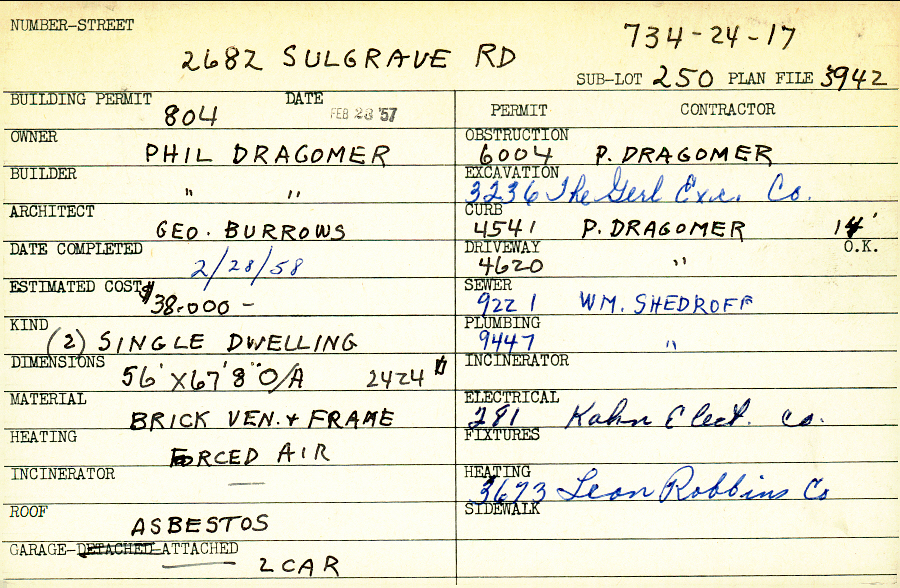 NUMBER-STREET
2682 SULGRAVE RD
734-24-17
SUB-LOT 250 PLAN FILE 3942
BUILDING PERMIT DATE
804 FEB 28 '57
OWNER
PHIL DRAGOMER
BUILDER
" "
ARCHITECT
GEO. BURROWS
DATE COMPLETED
2/28/58
ESTIMATED COST
$38.000 -
KIND
(2) SINGLE DWELLING
DIMENSIONS
56' X 67' 8" O/A 2424 #
MATERIAL
BRICK VEN. + FRAME
HEATING
FORCED AIR
INCINERATOR
—
ROOF
ASBESTOS
GARAGE-DETACHED-ATTACHED
2 CAR
PERMIT CONTRACTOR
OBSTRUCTION
6004 P. DRAGOMER
EXCAVATION
3236 The Gerl Exc. Co.
CURB
4541 P. DRAGOMER 14'
DRIVEWAY O.K.
4620 "
SEWER
9221 WM. SHEDROFF
PLUMBING
9447 "
INCINERATOR
ELECTRICAL
281 Kahn Elect. co.
FIXTURES
HEATING
3673 Leon Robbins Co
SIDEWALK